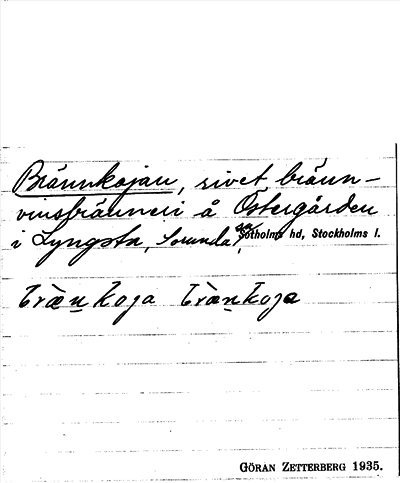 Brännkojan, rivet bränn-
vinsbränneri å Östergården
i Lyngsta, Sorunda sn, Sotholms hd, Stockholms l.
GÖRAN ZETTERBERG 1935.